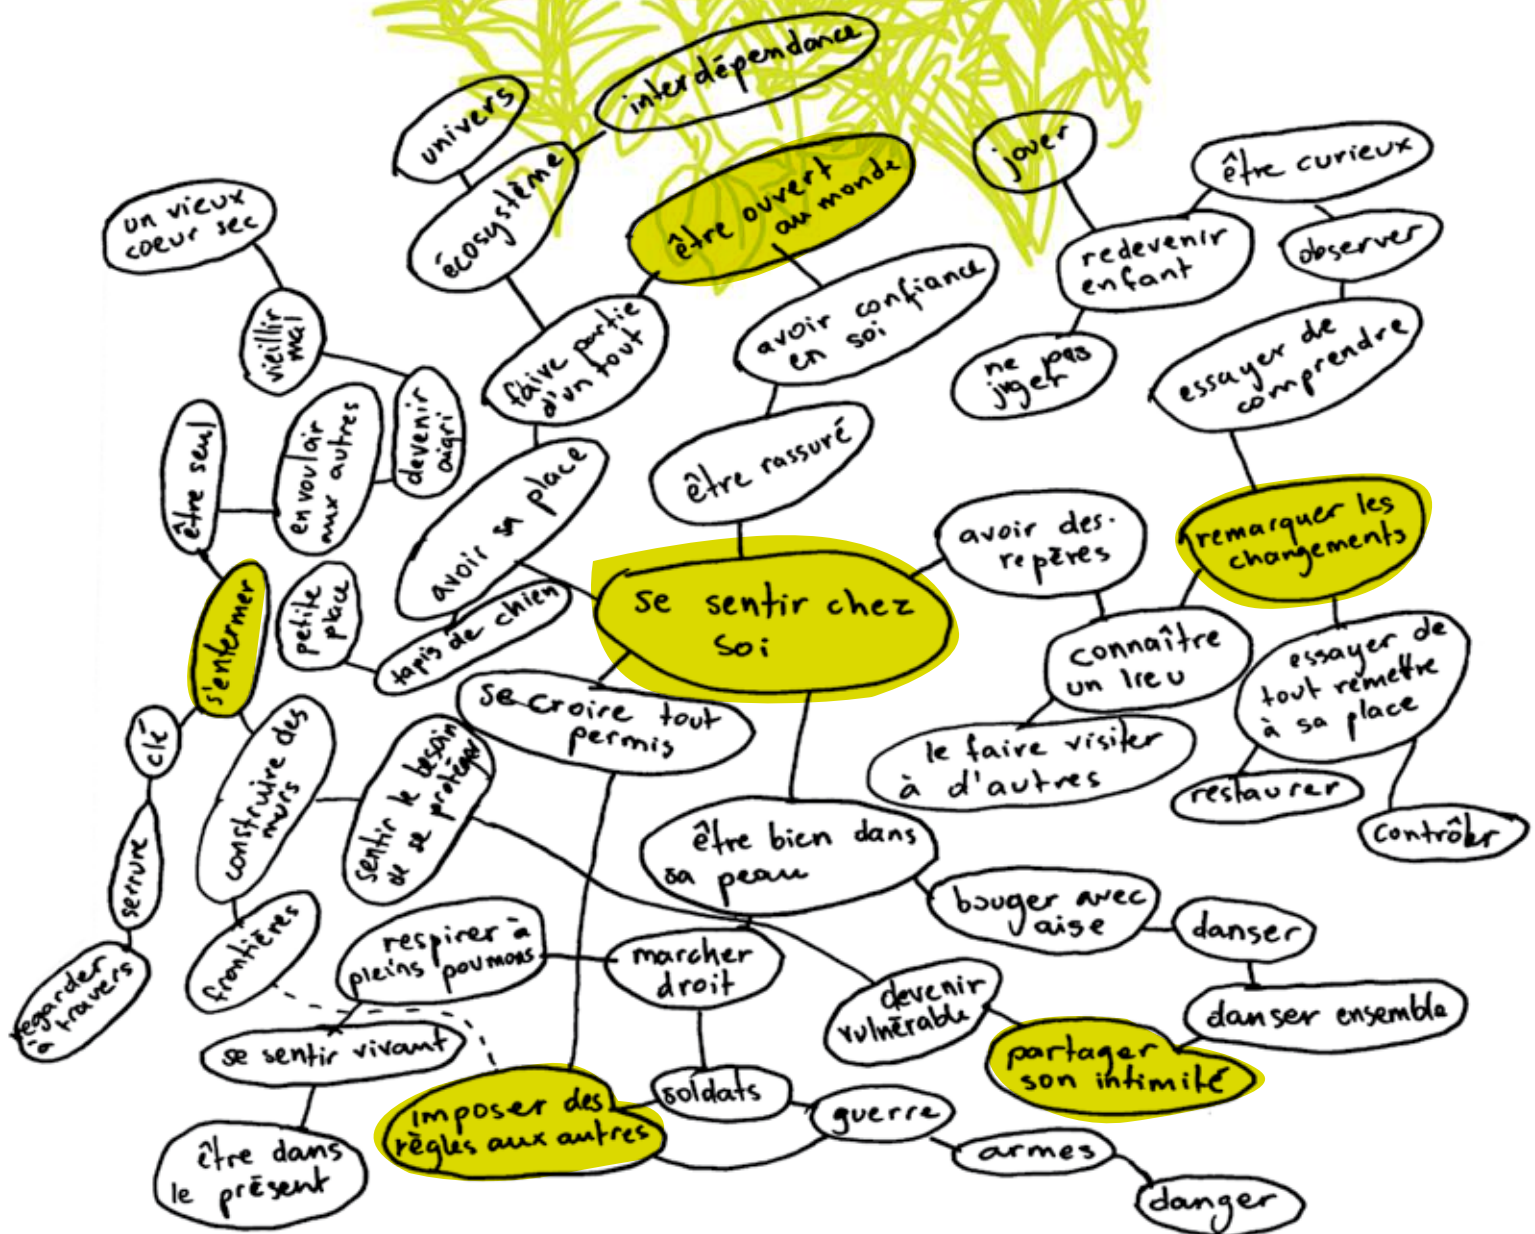 interdépendance
univers
écosystème
être ouvert
au monde
jouer
être curieux
un vieux
coeur sec
redevenir
enfant
observer
avoir confiance
en soi
faire partie
d'un tout
vieillir
mal
ne pas
juger
essayer de
comprendre
devenir
aigri
en vouloir
aux autres
être seul
être rassuré
avoir sa place
avoir des
repères
remarquer les
changements
s'enfermer
petite
place
tapis de chien
se sentir chez
soi
connaître
un lieu
essayer de
tout remettre
à sa place
clé
construire des
murs
sentir le besoin
de se protéger
se croire tout
permis
le faire visiter
à d'autres
restaurer
contrôler
serrure
être bien dans
sa peau
bouger avec
aise
danser
frontières
respirer à
pleins poumons
marcher
droit
regarder
à travers
devenir
vulnérable
danser ensemble
se sentir vivant
partager
son intimité
imposer des
règles aux autres
soldats
guerre
armes
être dans
le présent
danger